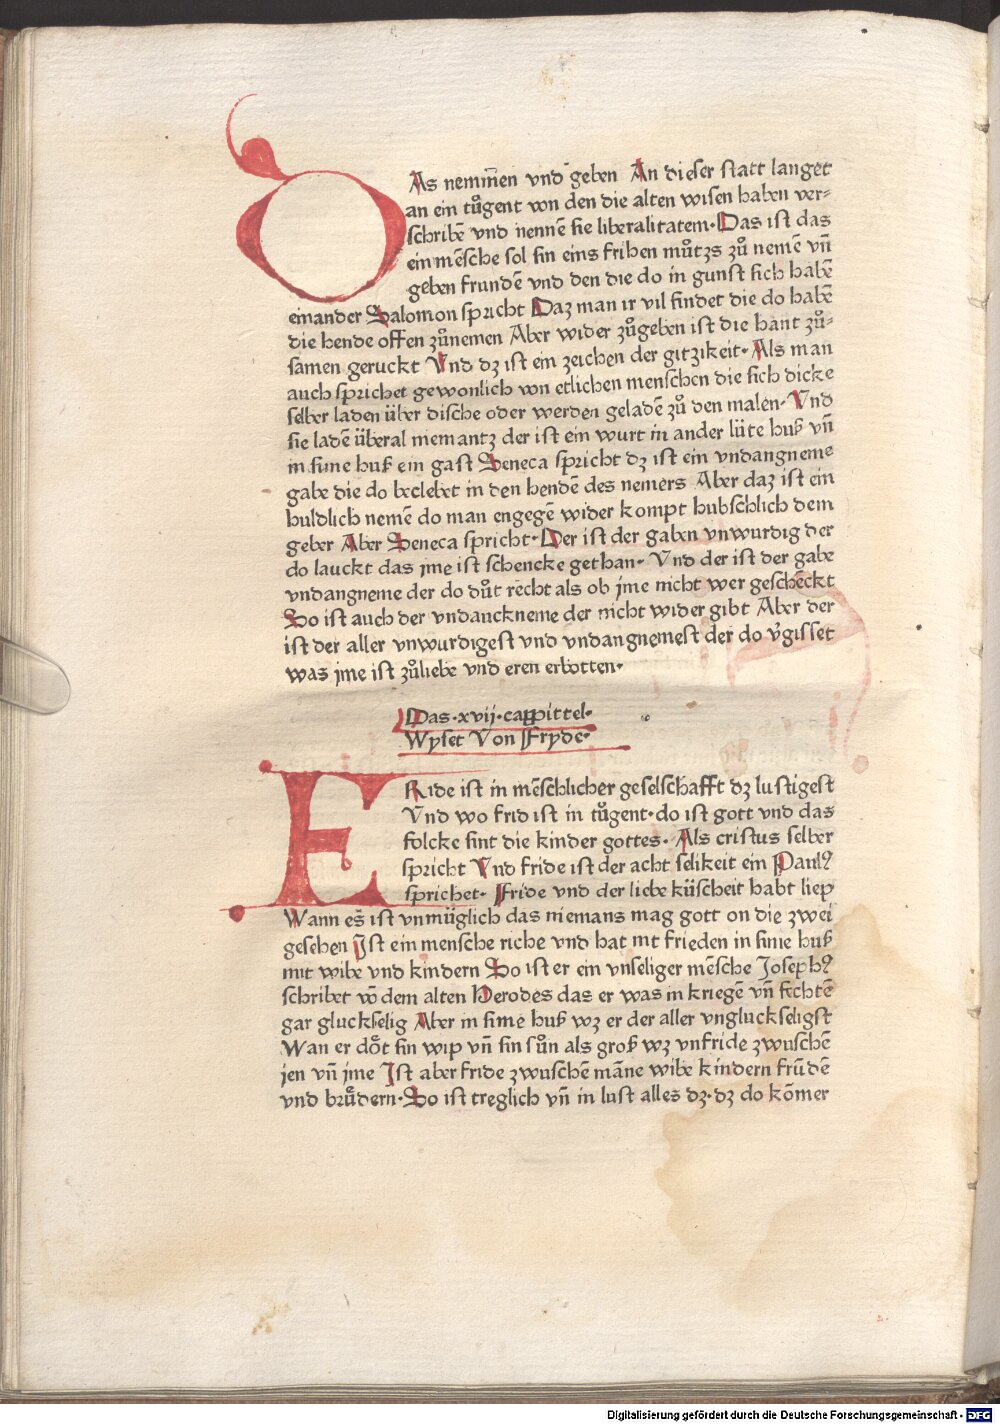 DAs nemm̃en vnd geben An dieser statt langet
an ein tůgent von den die alten wisen haben ver-
schribē vnd nennē sie liberalitatem· Das ist das
ein mēsche sol sin eins frihen můtzs zů nemē vn̄
geben frundē vnd den die do in gunst sich habē
einander Salomon spricht Daz man ir vil findet die do habē
die hende offen zůnemen Aber wider zůgeben ist die hant zů-
samen geruckt Vnd dz ist ein zeichen der gitzikeit· Als man
auch sprichet gewonlich von etlichen menschen die sich dicke
selber laden über dische oder werden geladē zů den malen· Vnd
sie ladē überal niemantz der ist ein wurt in ander lüte huß vn̄
in sine huß ein gast Seneca spricht dz ist ein vndangneme
gabe die do beclebet in den hendē des nemers Aber daz ist ein
huldlich nemē do man engegē wider kompt hubschlich dem
geber Aber Seneca spricht· Der ist der gaben vnwurdig der
do lauckt das jme ist schencke gethan· Vnd der ist der gabe
vndangneme der do důt recht als ob jme nicht wer geschēckt
So ist auch der vndauckneme der nicht wider gibt Aber der
ist der aller vnwurdigest vnd vndangnemest der do v̄gisset
was jme ist zůliebe vnd eren erbotten·
Das·xvij·cappittel·
Wyset Von Fryde·
FRide ist in mēschlicher geselschafft dz lustigest
Vnd wo frid ist in tůgent·do ist gott vnd das
folcke sint die kinder gottes· Als cristus selber
spricht Vnd fride ist der acht selikeit ein Paulꝰ
sprichet· Fride vnd der liebe küscheit habt liep
Wann es ist vnmüglich das niemans mag gott on die zwei
gesehen Ist ein mensche riche vnd hat nit frieden in sinē huß
mit wibe vnd kindern So ist er ein vnseliger mēsche Josephꝰ
schribet vō dem alten Herodes das er was in kriegē vn̄ fechtē
gar gluckselig Aber in sinē huß wz er der aller vngluckseligst
Wan er dőt sin wip vn̄ sin sůn als groß wz vnfride zwuschē
jen vn̄ jme Ist aber fride zwuschē māne wibe kindern frūdē
vnd brůdern· So ist treglich vn̄ in lust alles dz·dz do kōmer
Digitalisierung gefördert durch die Deutsche Forschungsgemeinschaft - DFG